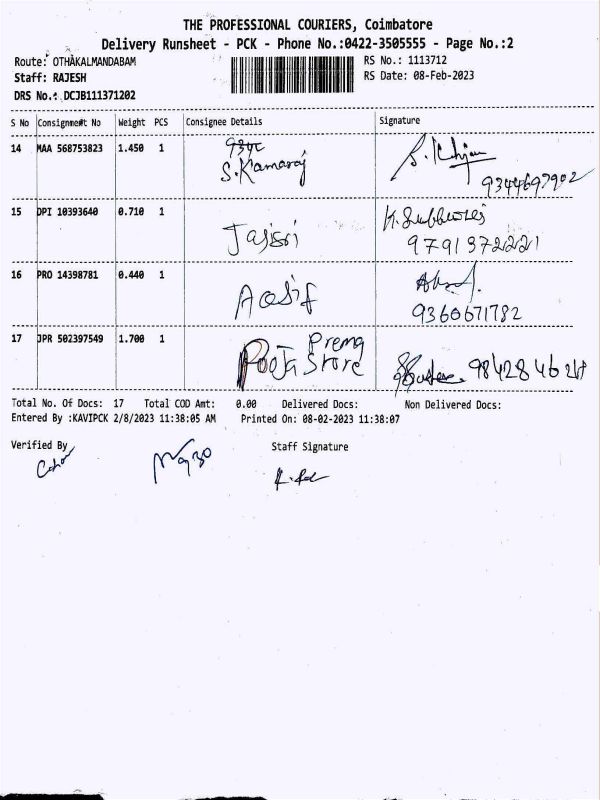 THE PROFESSIONAL COURIERS, Coimbatore
Delivery Runsheet - PCK - Phone No.:0422-3505555 - Page No.:2
Route: OTHAKALMANDABAM RS No.: 1113712
Staff: RAJESH RS Date: 08-Feb-2023
DRS No.: DCJB111371202
S No Consignment No Weight PCS Consignee Details Signature
14 MAA 568753823 1.450 1
S. Kamaraj
9344697902
15 DPI 10393640 0.710 1
Jajisri
9791372221
16 PRO 14398781 0.440 1
Aasif
9360671782
17 JPR 502397549 1.700 1 Prema
Pooja Store
Total No. Of Docs: 17 Total COD Amt: 0.00 Delivered Docs: Non Delivered Docs:
Entered By :KAVIPCK 2/8/2023 11:38:05 AM Printed On: 08-02-2023 11:38:07
Verified By Staff Signature